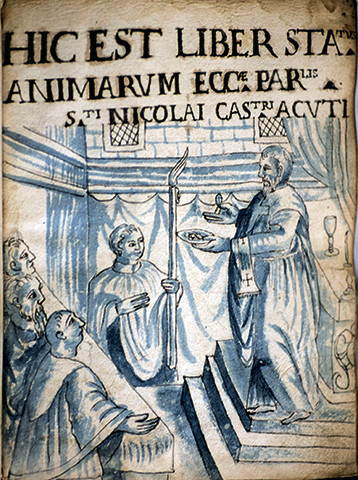 HIC EST LIBER STATUS
ANIMARVM ECCVÆ PARLIS
STI NICOLAI CASTRI ACUTI